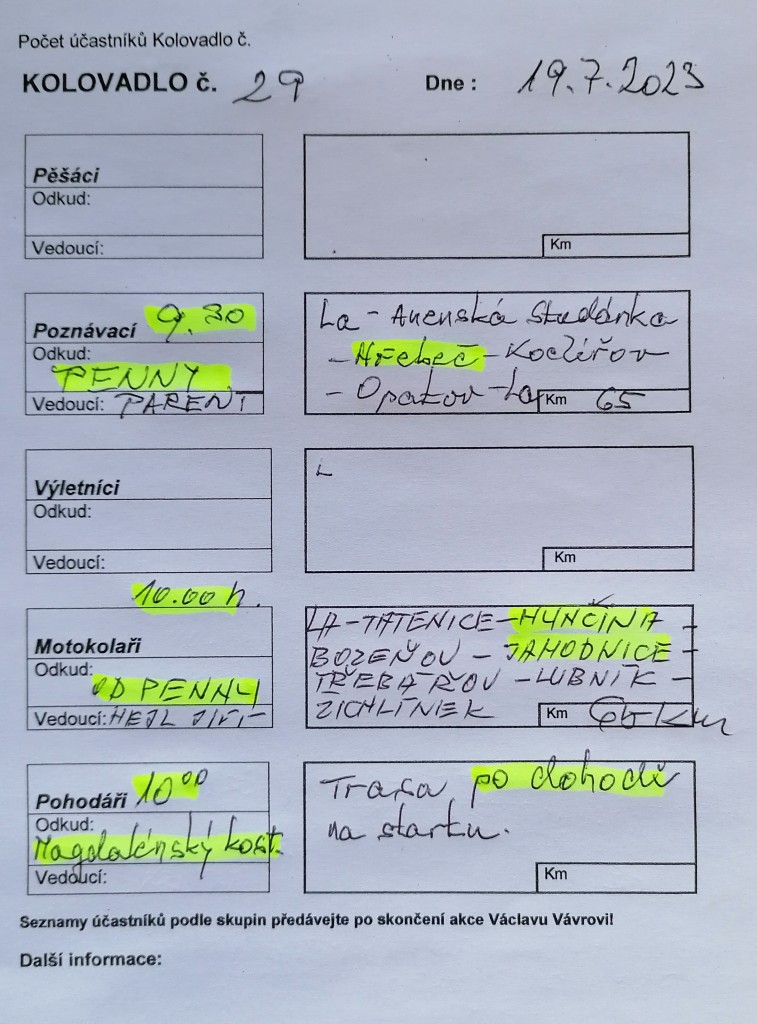 Počet účastníků Kolovadlo č.
KOLOVADLO č. 29 Dne : 19.7.2023
Pěšáci
Odkud:
Vedoucí:
Km
Poznávací 9.30
Odkud:
PENNY
Vedoucí: PARENT
La - Anenská Studánka
- Hřebeč - Koclířov
- Opatov - La
Km 65
Výletníci
Odkud:
Vedoucí:
Km
10.00 h.
Motokolaři
Odkud:
OD PENNY
Vedoucí: HEJL JIŘÍ
LA - TATENICE - HUNČINA -
BOZEŇOV - JAHODNICE -
TŘEBAŘOV - LUBNÍK -
ZICHLÍNEK
Km
Pohodáři 10⁰⁰
Odkud:
Magdalénský kost.
Vedoucí:
Trasa po dohodě
na startu.
Km
Seznamy účastníků podle skupin předávejte po skončení akce Václavu Vávrovi!
Další informace: